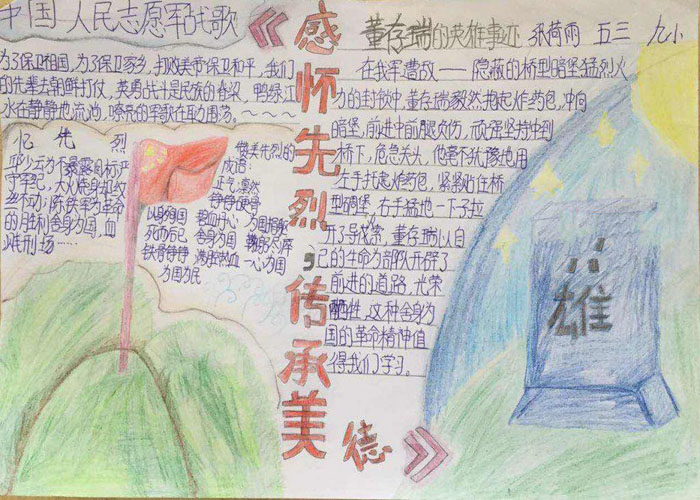 中国人民志愿军战歌
为了保卫祖国,为了保卫家乡,打败美帝保卫和平,我们
的先辈去朝鲜打仗,英勇战士是民族的脊梁,鸭绿江
水在静静地流淌,嘹亮的军歌在耳边围荡。~~
忆先烈
邱少云为不暴露目标严
守军纪,大火烧身却纹
丝不动;陈铁军为革命
的胜利舍身为国,血
洒刑场……
赞美先烈的
成语:
正气凛然
铮铮硬骨
以身为国
死而后已
铁骨铮铮
碧血丹心
舍身为国
满腔热血
为国捐躯
一心为国
为国为民
《感怀先烈,传承美德》
董存瑞的英雄事迹 张荷雨 五三 九小
在我军遭敌——隐蔽的桥型暗堡猛烈火
力的封锁中,董存瑞毅然抱起炸药包,冲向
暗堡,前进中前腿负伤,顽强坚持冲到
桥下,危急关头,他毫不犹豫地用
左手托起炸药包,紧紧贴住桥
型碉堡,右手猛地一下子拉
开了导火索,董存瑞以自
己的生命为部队开辟了
前进的道路,光荣
牺牲,这种舍身为
国的革命精神值
得我们学习。
雄